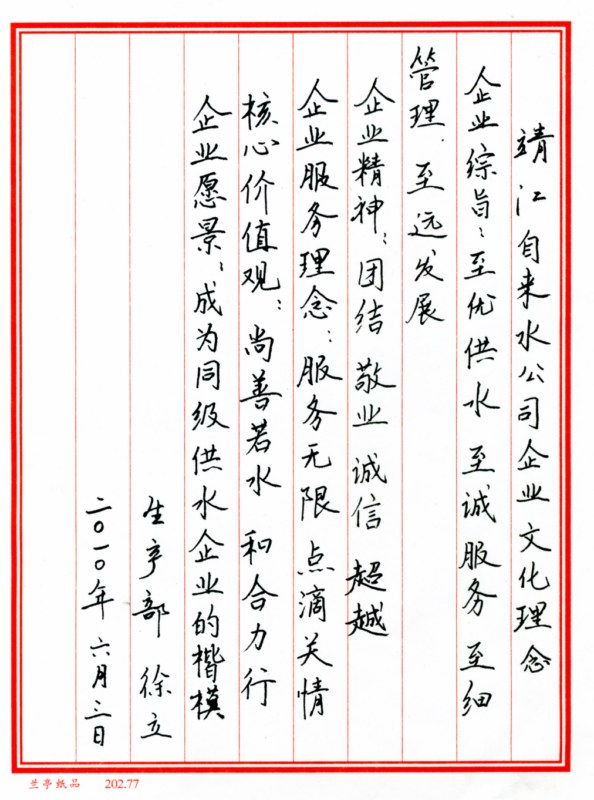 靖江自来水公司企业文化理念
企业综旨：至优供水 至诚服务 至细
管理．至远发展
企业精神：团结 敬业 诚信 超越
企业服务理念：服务无限 点滴关情
核心价值观：尚善若水 和合力行
企业愿景：成为同级供水企业的楷模
生产部 徐立
二〇一〇年六月三日
兰亭纸品 202.77